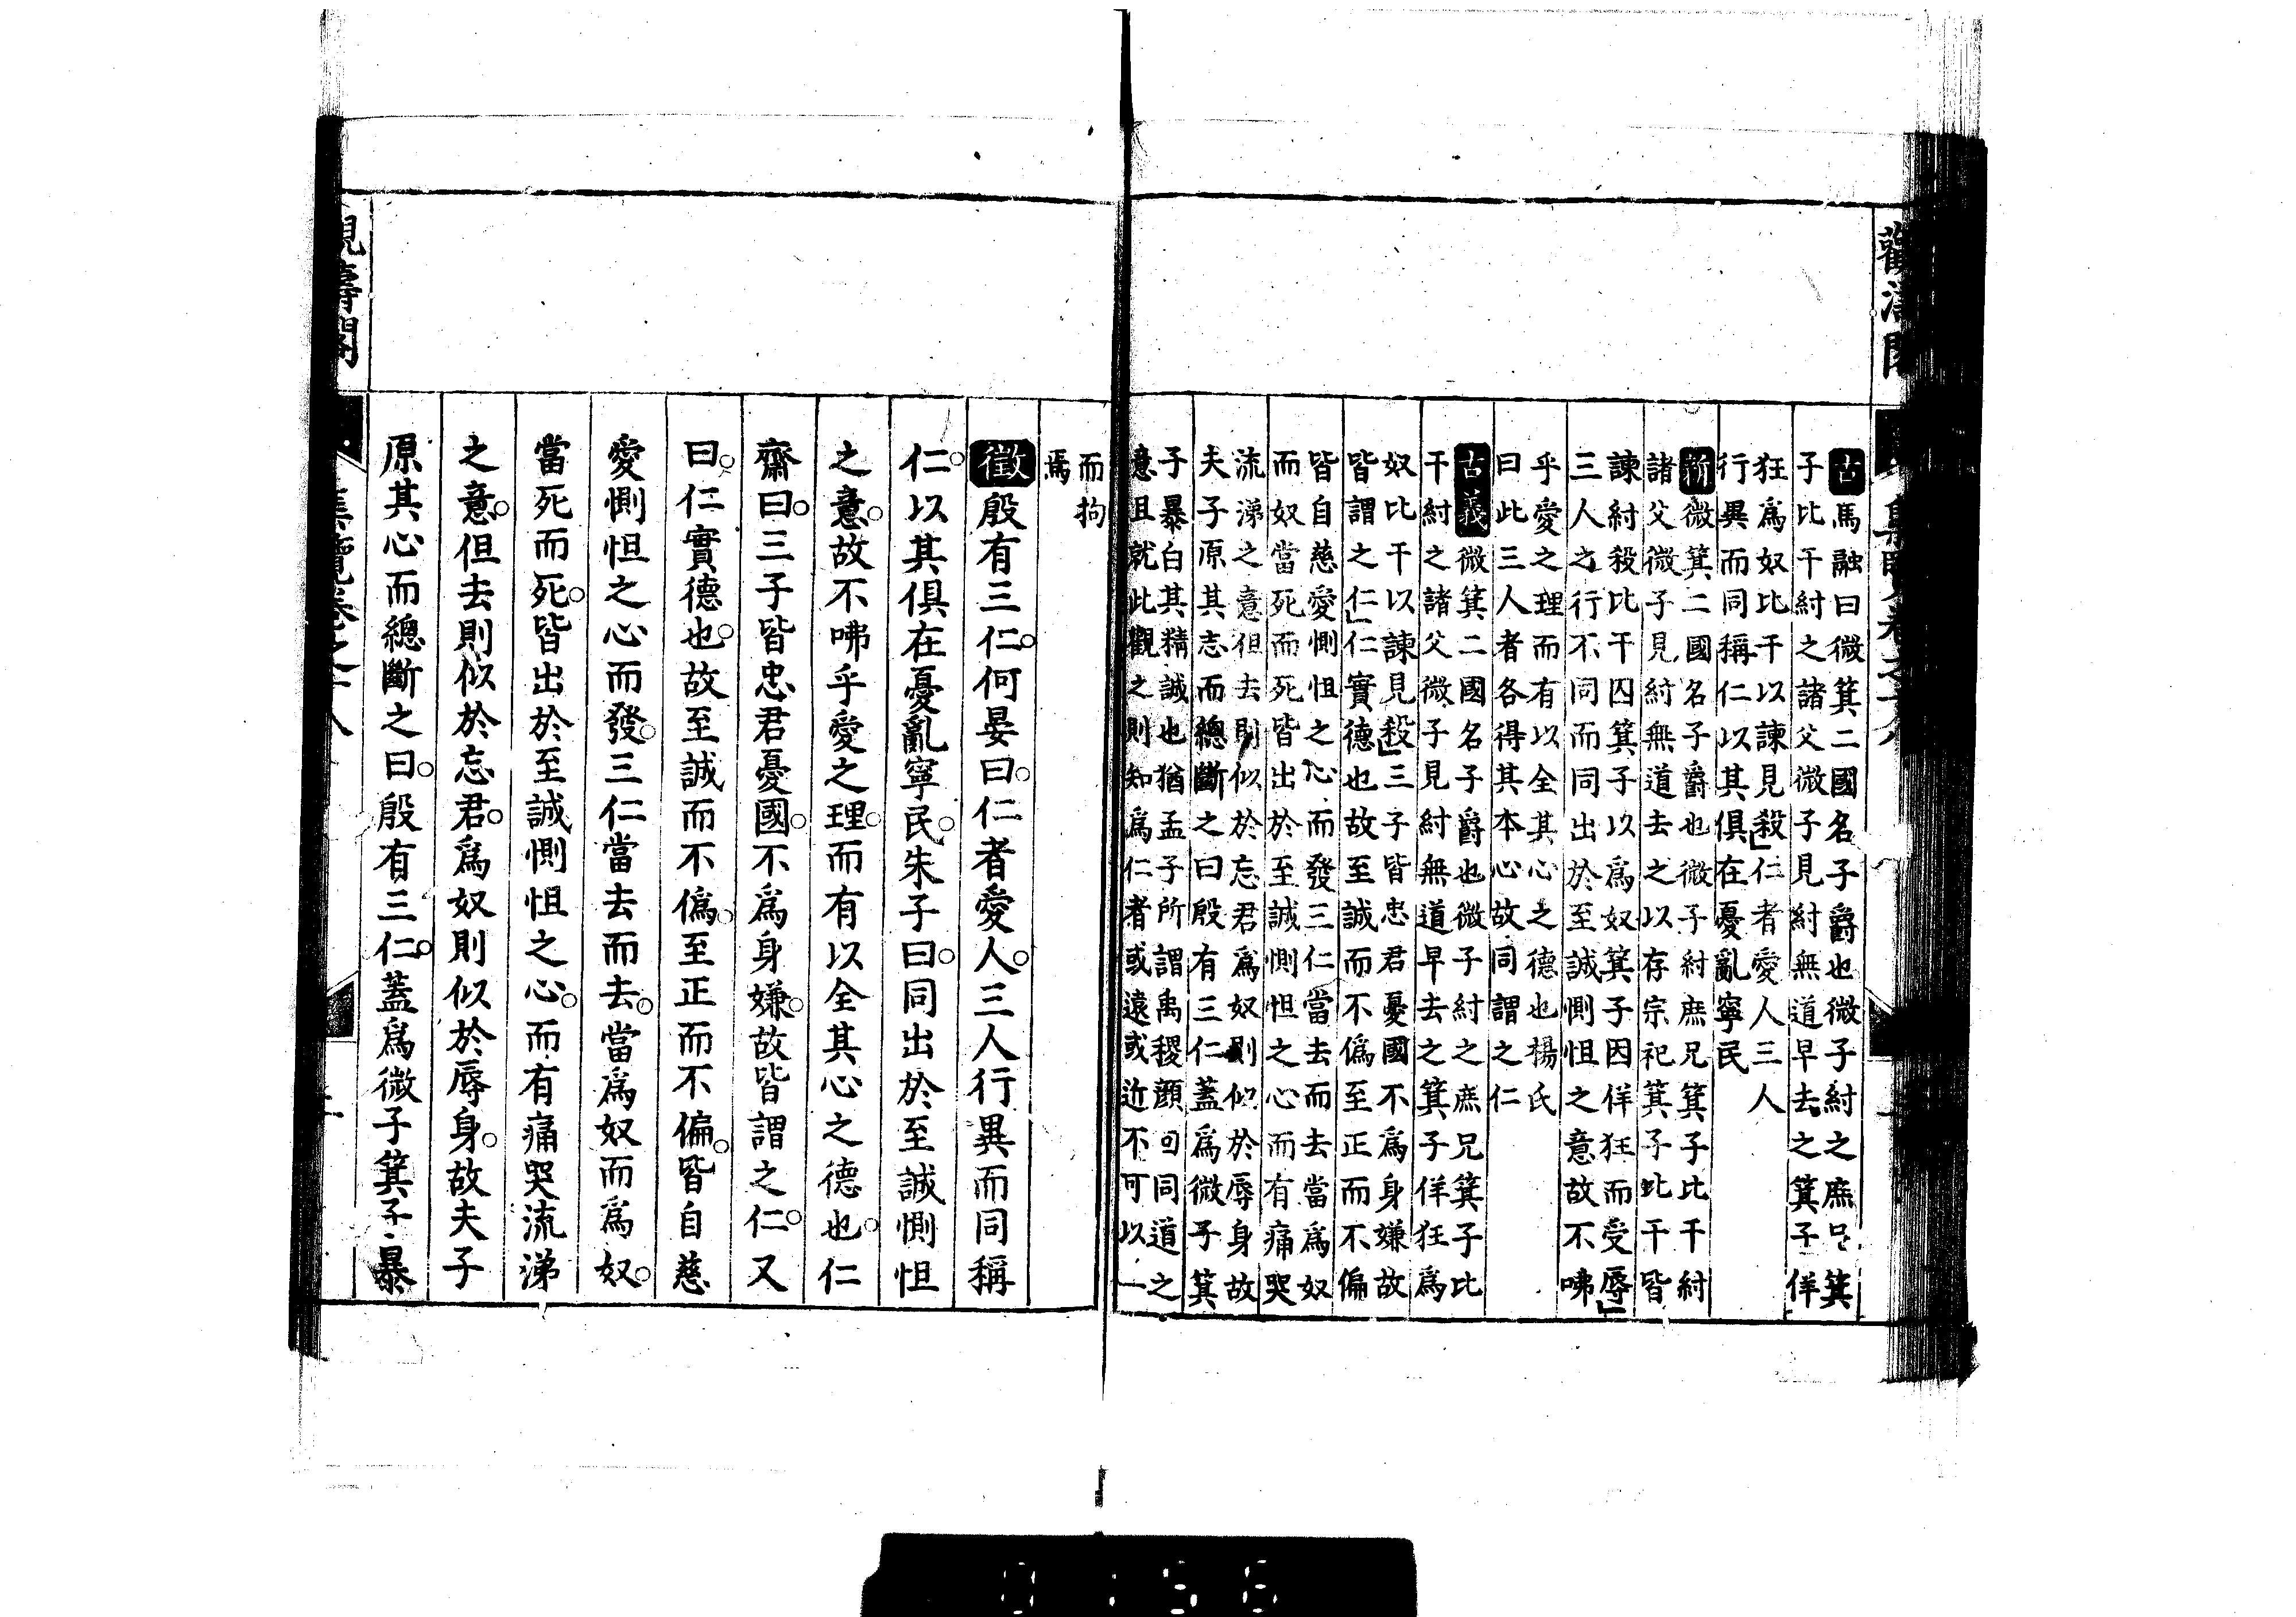 古馬融曰微箕二國名子爵也微子紂之庶兄箕
子比干紂之諸父微子見紂無道早去之箕子佯
狂爲奴比干以諫見殺仁者愛人三人
行異而同稱仁以其俱在憂亂寧民
新微箕二國名子爵也微子紂庶兄箕子比干紂
諸父微子見紂無道去之以存宗祀箕子比干皆
諫紂殺比干囚箕子以爲奴箕子因佯狂而受辱
三人之行不同而同出於至誠惻怛之意故不咈
乎愛之理而有以全其心之德也楊氏
曰此三人者各得其本心故同謂之仁
古義微箕二國名子爵也微子紂之庶兄箕子比
干紂之諸父微子見紂無道早去之箕子佯狂爲
奴比干以諫見殺三子皆忠君憂國不爲身嫌故
皆謂之仁仁實德也故至誠而不僞至正而不偏
皆自慈愛惻怛之心而發三仁當去而去當爲奴
而奴當死而死皆出於至誠惻怛之心而有痛哭
流涕之意但去則似於忘君爲奴則似於辱身故
夫子原其志而總斷之曰殷有三仁蓋爲微子箕
子暴白其精誠也猶孟子所謂禹稷顔回同道之
意且就此觀之則知爲仁者或遠或近不可以一
而拘
焉
徵殷有三仁何晏曰仁者愛人三人行異而同稱
仁以其俱在憂亂寧民朱子曰同出於至誠惻怛
之意故不咈乎愛之理而有以全其心之德也仁
齋曰三子皆忠君憂國不爲身嫌故皆謂之仁又
曰仁實德也故至誠而不僞至正而不偏皆自慈
愛惻怛之心而發三仁當去而去當爲奴而爲奴
當死而死皆出於至誠惻怛之心而有痛哭流涕
之意但去則似於忘君爲奴則似於辱身故夫子
原其心而總斷之曰殷有三仁蓋爲微子箕子暴